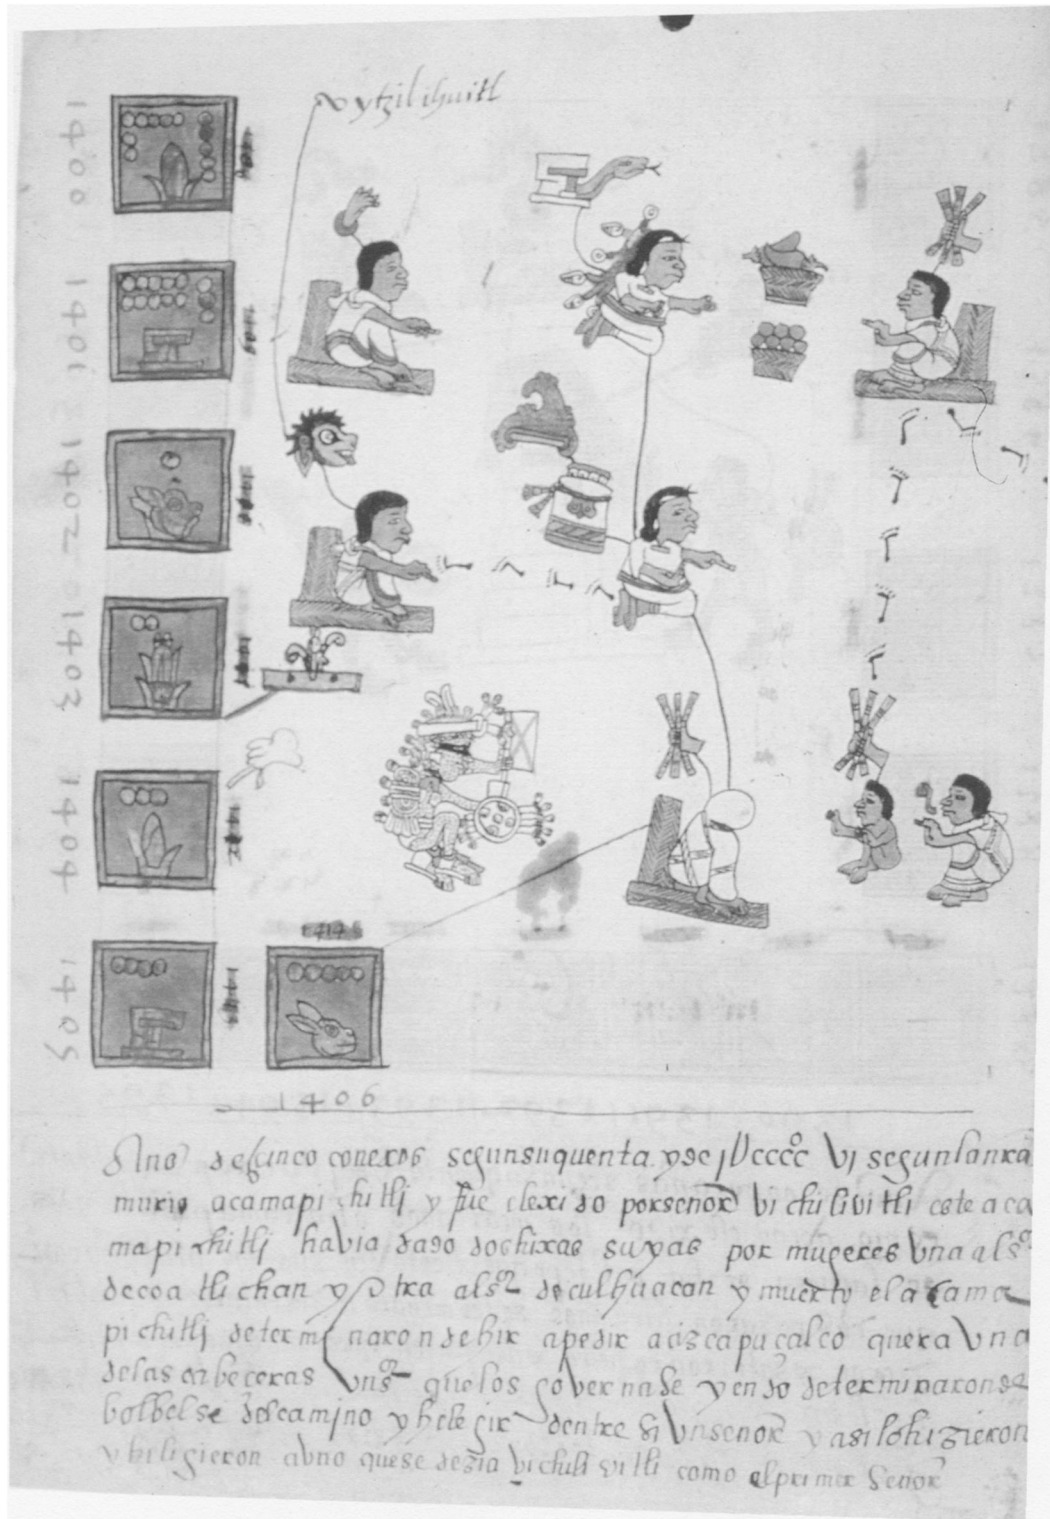 vytzilihuitl
1400
1401
1402
1403
1404
1405
1406
Ano de çinco conexos segun su quenta y de jVccccº Vj segun la nra
murio acamapichitlj y fue elexido por señor Vichilivitli este aca
mapichitlj havia dado dos hixas suyas por mugeres Vna al sºr
de coatlichan y otra al sºr de culhuacan y muerto el acama
pichitlj determinaron de hir a pedir a azcapuçalco quera Vna
de las cabeceras Vn sºr que los governase yendo determinaron de
bolbelse del camino y helegir dentre si Vn senor y asi lo hizieron
y hiligieron a Vno que se dezia Vichilivitli como el primer Señor